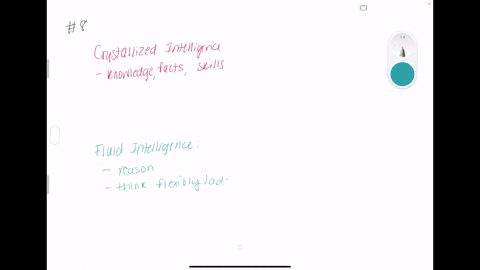 #8
Crystallized Intelligence
- knowledge, facts, skills
Fluid Intelligence:
- reason
- think flexibly/ad-